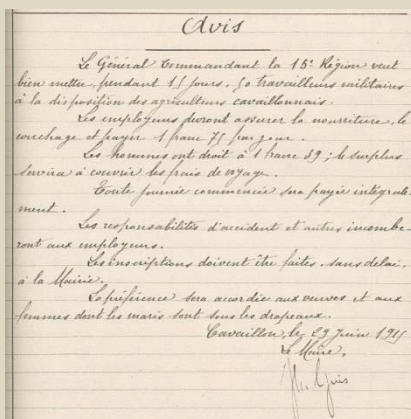 Avis
Le Général Commandant la 15e Région veut
bien mettre, pendant 15 jours, 50 travailleurs militaires
à la disposition des agriculteurs cavaillonnais.
Les employeurs devront assurer la nourriture, le
couchage et payer 1 franc 75 par jour.
Les hommes ont droit à 1 franc 39; le surplus
servira à couvrir les frais de voyage.
Toute journée commencée sera payée intégrale-
ment.
Les responsabilités d'accident et autres incombe-
ront aux employeurs.
Les inscriptions doivent être faites, sans délai,
à la Mairie.
La préférence sera accordée aux veuves et aux
femmes dont les maris sont sous les drapeaux.
Cavaillon, le 29 Juin 1915
Le Maire,